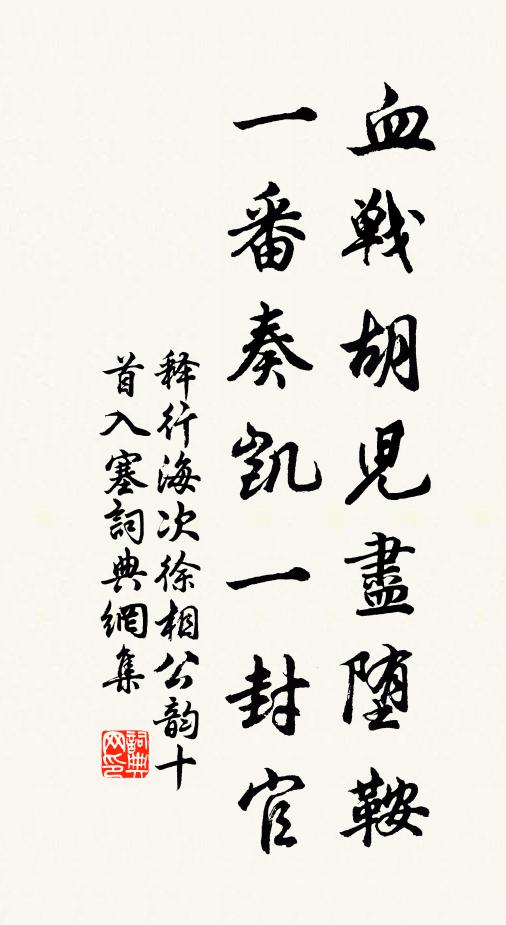 血戦胡児盡堕鞍
一番奏凱一封官
释行海次徐相公韵十
首入塞詞典網集
詞典网印